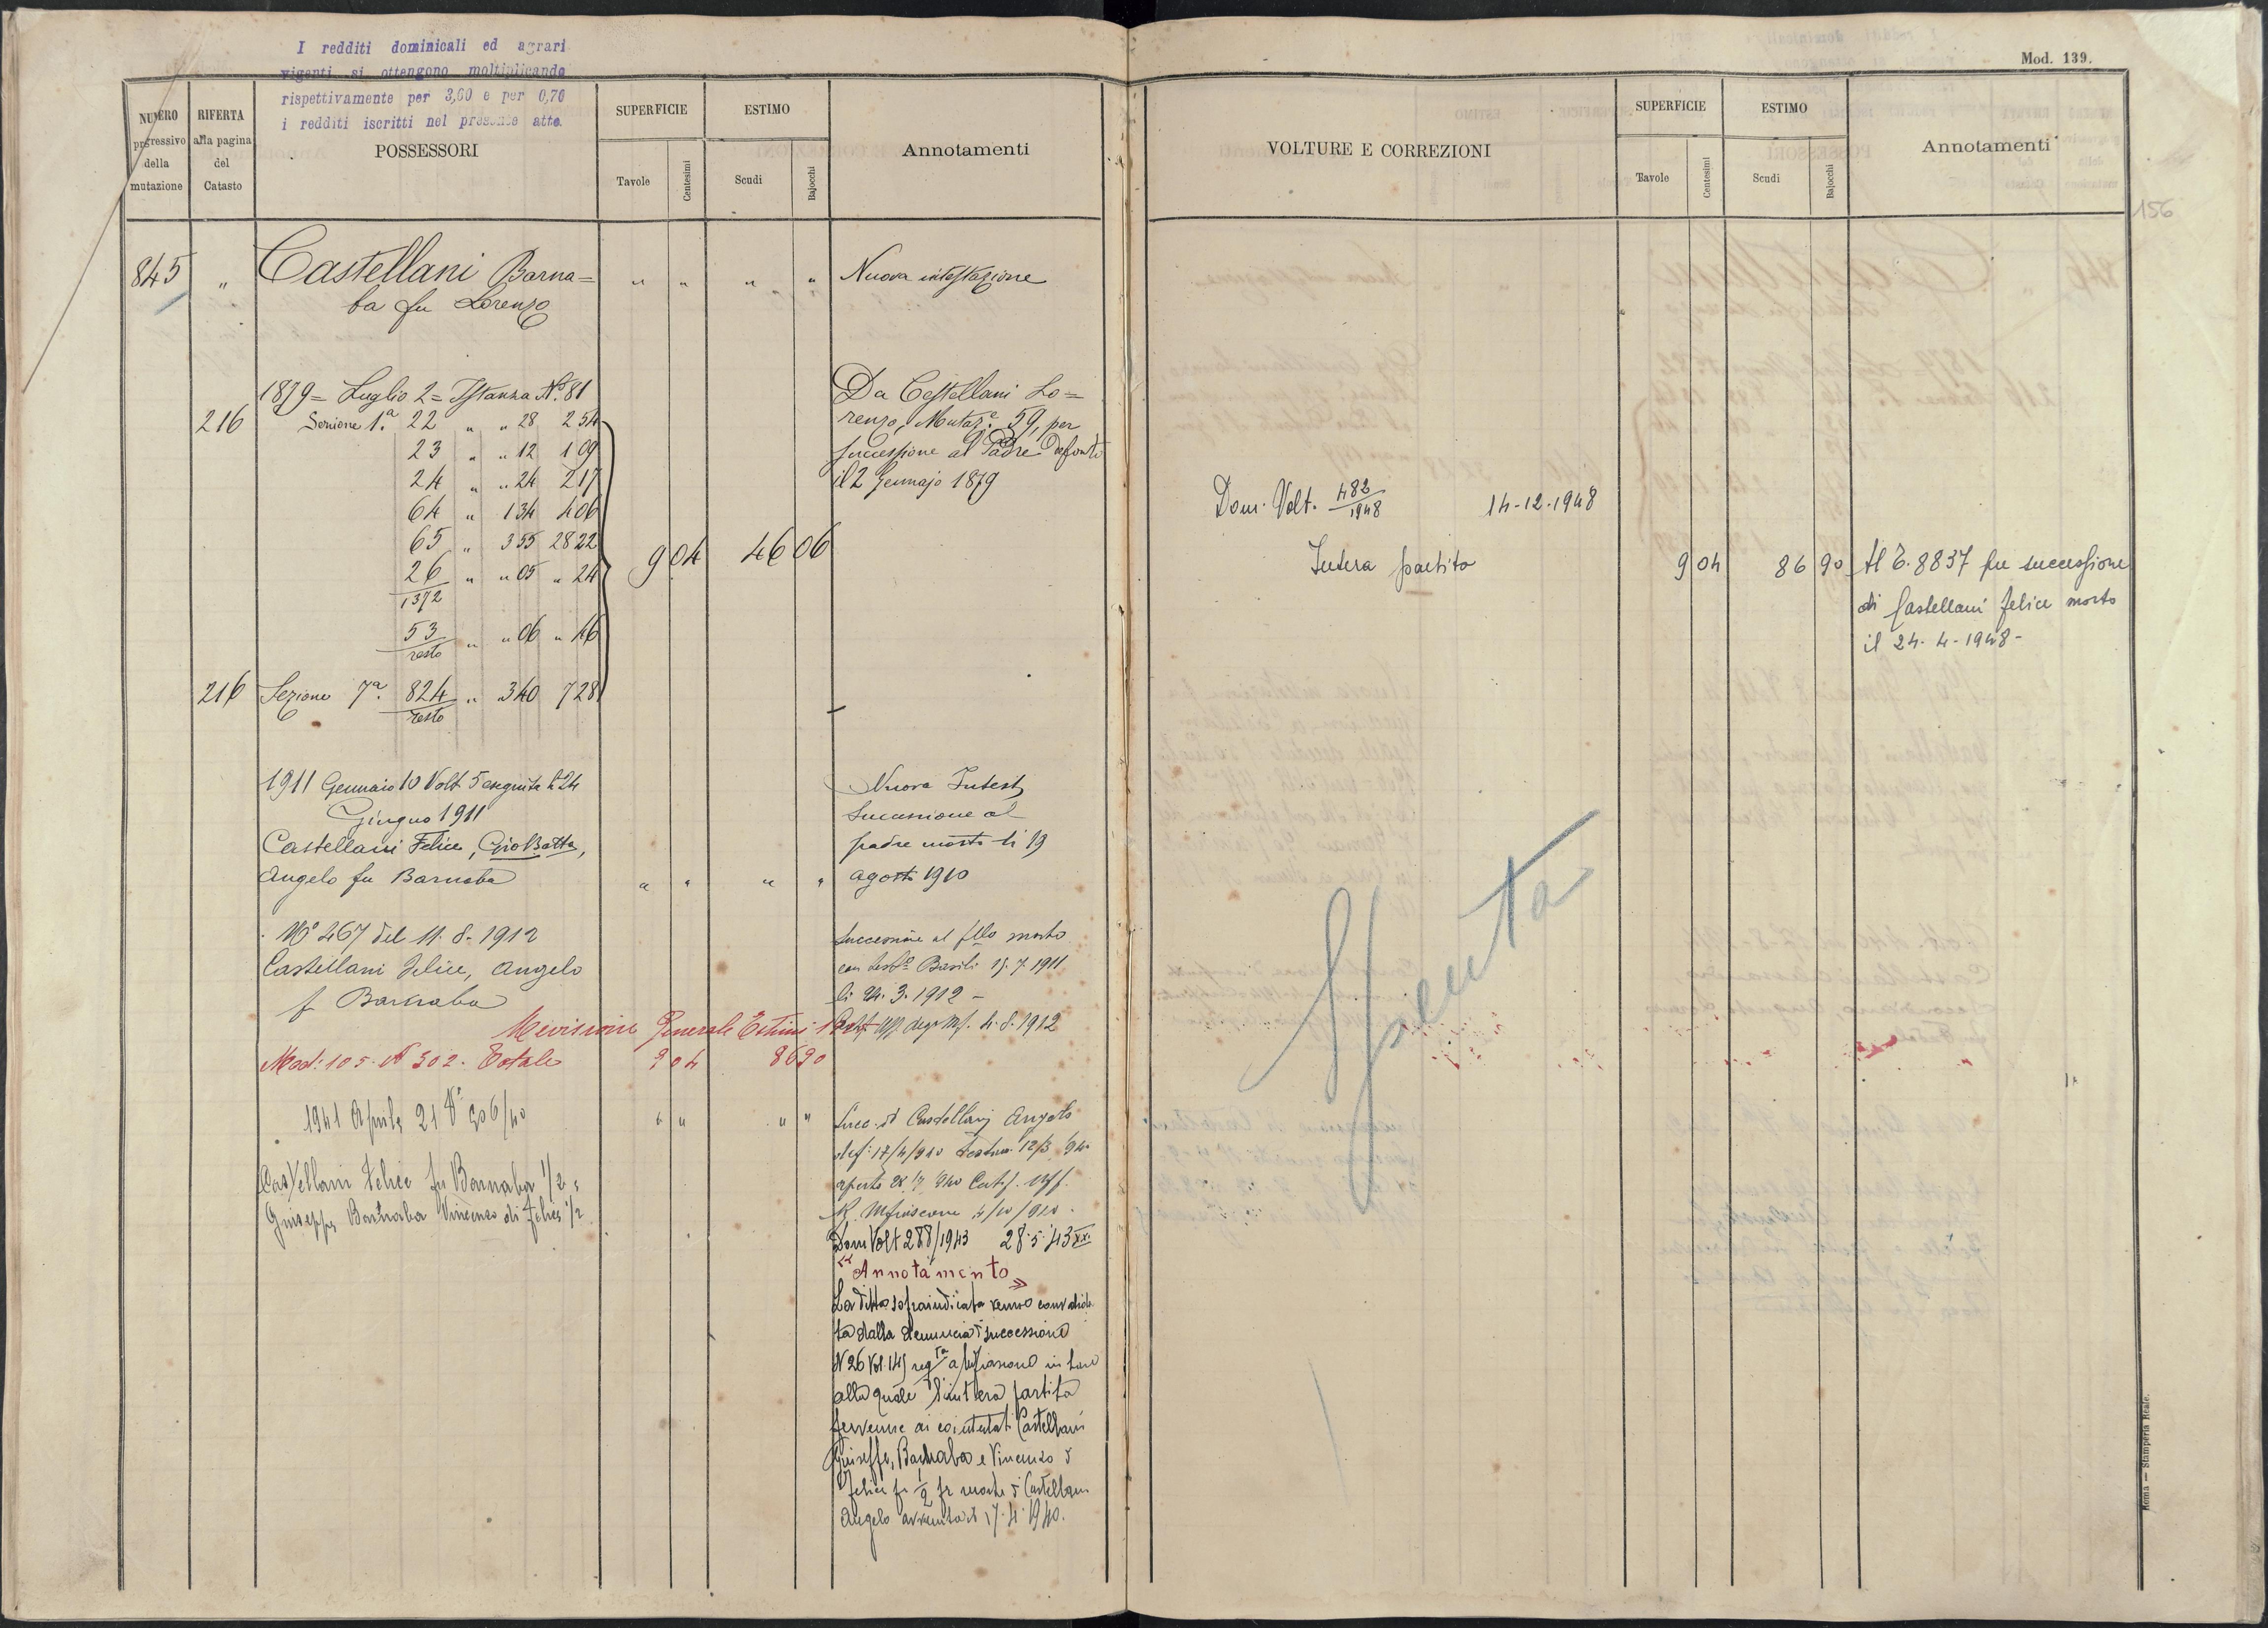 I redditi dominicali ed agrari
vigenti si ottengono moltiplicando
rispettivamente per 3,60 e per 0,70
i redditi iscritti nel presente atto.
NUMERO
progressivo
della
mutazione
RIFERTA
alla pagina
del
Catasto
POSSESSORI
SUPERFICIE
Tavole
Centesimi
ESTIMO
Scudi
Bajocchi
Annotamenti
845 " Castellani Barna= " " " " Nuova intestazione
ba fu Lorenzo
1879 = Luglio 2 = Istanza N.° 81
216 Sezione 1.a 22 " " 28 254
23 " " 12 109
24 " " 24 217
64 " 134 406
65 " 355 2822
26/1372 " " 05 " 24
53/resto " " 06 " 46
216 Sezione 7a. 824/resto " 340 728
9 04 46 06
Da Castellani Lo=
renzo, Mutaz.e 59, per
successione al Padre defonto
il 2 Gennajo 1879
1911 Gennaio 10 Volt 5 eseguita li 24
Giugno 1911
Castellani Felice, Gio Batta,
Angelo fu Barnaba " " " "
Nuova Intest
Successione al
padre morto li 19
agosto 1910
N° 467 del 11. 8. 1912
Castellani Felice, Angelo
f Barnaba
Successione al fllo morto
con test° Basili 15. 7. 1911
li 24. 3. 1912 -
4. 8. 1912
Revisione Generale Estimi
Mod: 105. N 302. Totale 9 04 86 90
1941 Aprile 21
Castellani Felice fu Barnaba 1/2 e
Giuseppe Barnaba Vincenzo di Felice 1/2
Succ. di Castellani Angelo
def: 17/4/940 Testam 12/3
Dom Volt 288/1943 28.5.43 XXI
"Annotamento"
La Ditta sopraindicata venne convalida
ta dalla denuncia di successione
N 26 Vol. 145
alla quale l'intera partita
pervenne ai cointestati Castellani
Giuseppe, Barnaba e Vincenzo di
Felice p 1/2 per morte di Castellani
Angelo avvenuta il 17.4.1940.
Mod. 139.
VOLTURE E CORREZIONI
SUPERFICIE
Tavole
Centesimi
ESTIMO
Scudi
Bajocchi
Annotamenti
156
Dom. Volt. 482/1948 14-12-1948
Intera partita 9 04 86 90 Al T. 8837 per successione
di Castellani Felice morto
il 24-4-1948-
Spenta
Roma — Stamperia Reale.